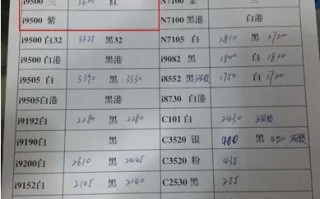 i9500 兰 红 N7100 兰
i9500 紫 N7100 黑港 白港
i9500 白32 3625 黑32 N7105 白 2810 黑 2720
i9500 白港 黑港 N9082 白 1820 黑 1820
i9505 白 3390 黑 3330 i8552 黑 1750 白 1720
i9505白港 黑港 i8730 白港
i9192白 2280 黑 2280 C101 白 2430
i9190白 黑 C3520 银 400 黑
i9200白 2610 黑 2445 C3520 粉 435
i9152白 2105 黑 2140 C2530 黑 255